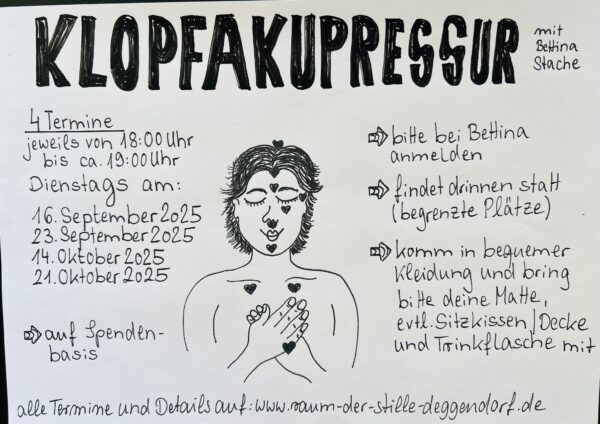 KLOPFAKUPRESSUR
mit
Bettina
Stache
4 Termine
jeweils von 18:00 Uhr
bis ca. 19:00 Uhr
Dienstags am:
16. September 2025
23. September 2025
14. Oktober 2025
21. Oktober 2025
⇨ auf Spenden-
basis
⇨ bitte bei Bettina
anmelden
⇨ findet drinnen statt
(begrenzte Plätze)
⇨ komm in bequemer
Kleidung und bring
bitte deine Matte,
evtl. Sitzkissen/Decke
und Trinkflasche mit
alle Termine und Details auf: www.raum-der-stille-deggendorf.de